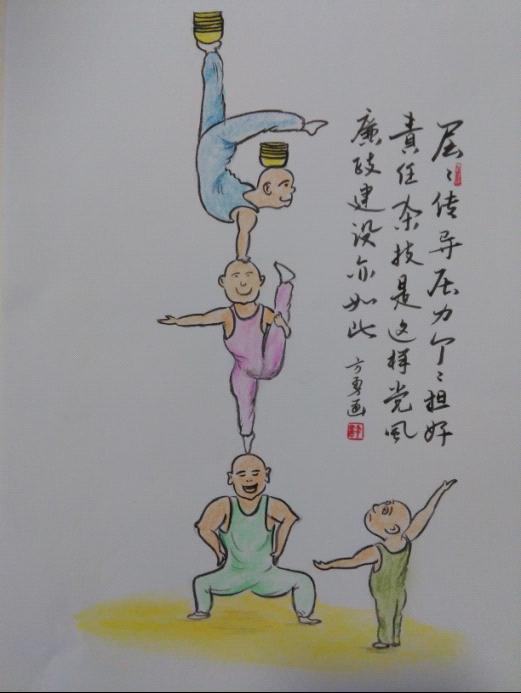 层〻传导压力个〻担好
责任杂技是这样党风
廉政建设亦如此
方勇画